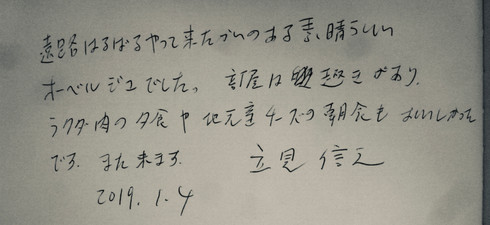 遠路はるばるやって来たかいのある素晴らしい
オーベルジュでした。部屋は趣きがあり、
ラクダ肉の夕食や地元産チーズの朝食もおいしかった
です。また来ます。 立見 信之
2019.1.4